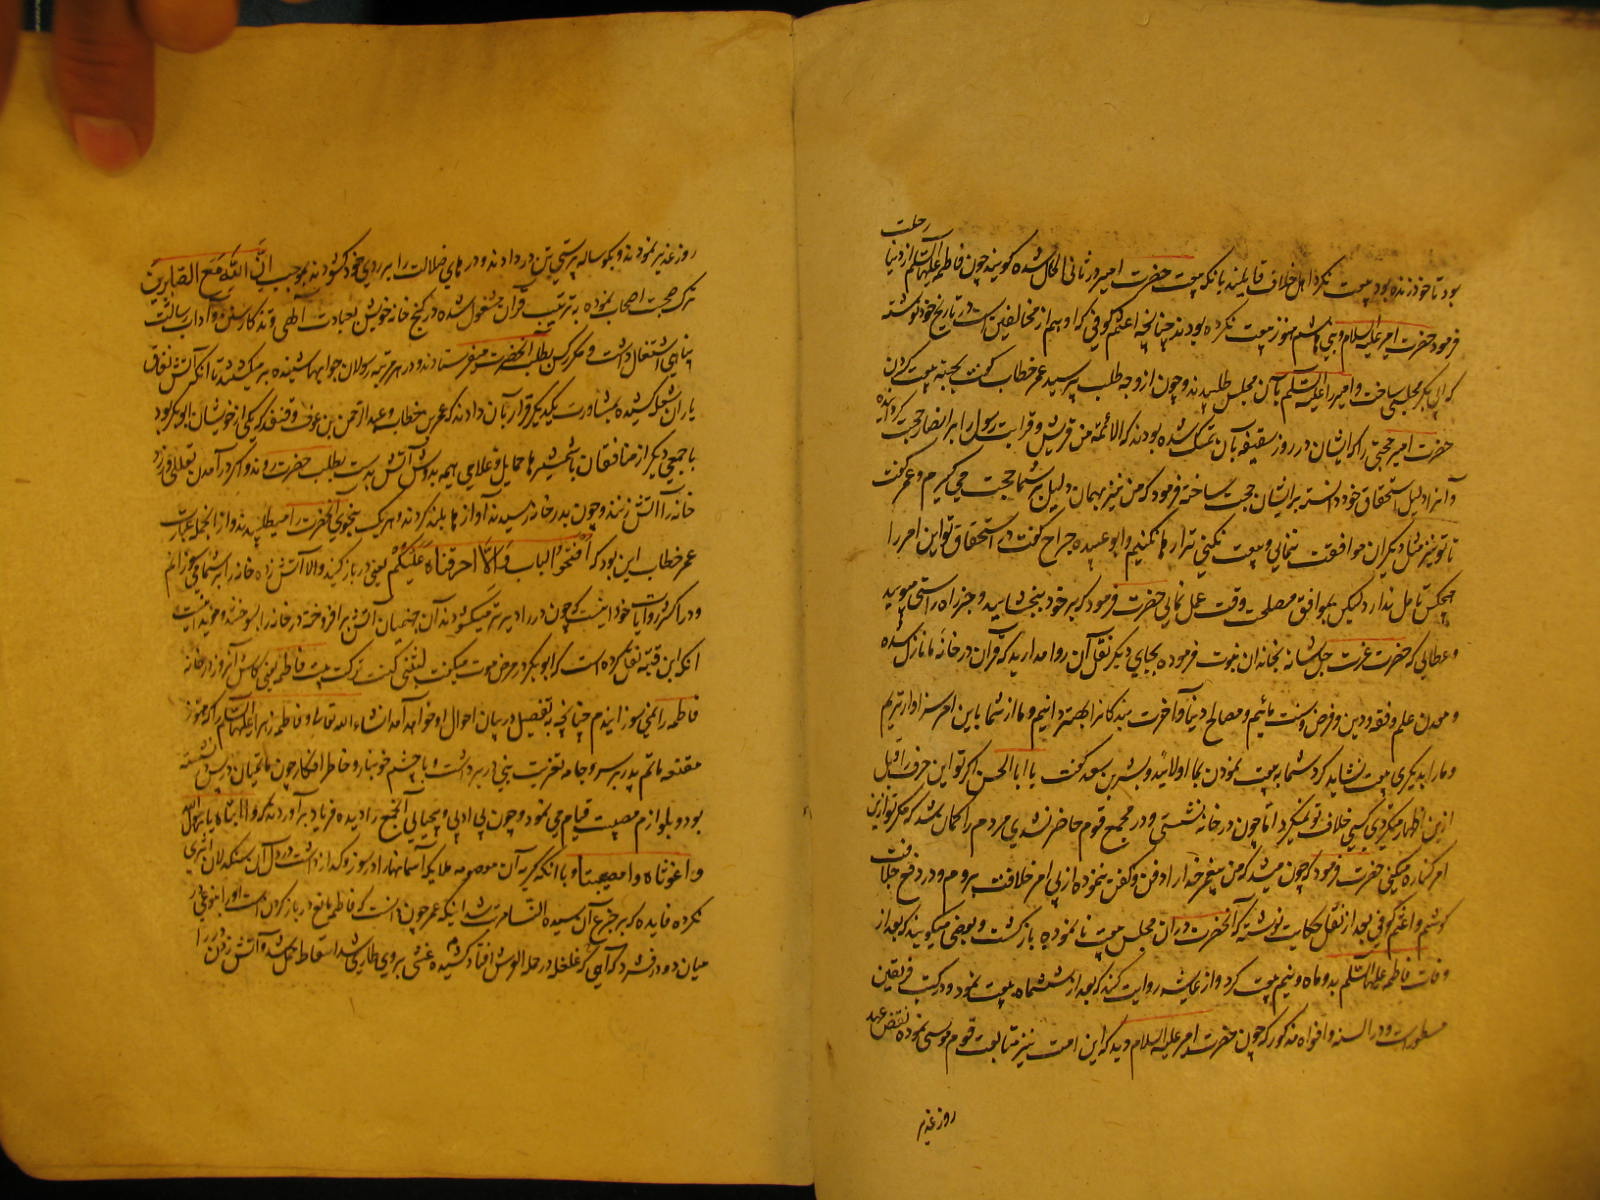 رحلت
بود تا خود زنده بود بیعت نکرد اهل خلاف قایلند بانکه بیعت حضرت امیر در ثانی الحال شده گویند چون فاطمه علیها السلام از دنیا
فرمود حضرت امیر علیه السلام و بنی هاشم هنوز بیعت نکرده بودند چنانچه اعثم کوفی که او هم از مخالفین است در تاریخ خود نوشته
که ابی بکر مجلسی ساخت و امیر را علیه السلام بآن مجلس طلبیدند و چون از وجه طلب پرسید عمر خطاب گفت بجهة بیعت کردن
حضرت امیر حجتی را که ایشان در روز سقیفه بآن متمسک شده بودند که الائمة من قریش و قرابت رسول را بر انصار حجت گردانیده
و آنرا دلیل استحقاق خود دانسته بر ایشان حجت ساخته فرمود که من نیز بهمان دلیل بر شما حجت می گیرم و عمر گفت
تا تو نیز مثل دیگران موافقت ننمایی و بیعت نکنی ترا رها نکنیم و ابو عبیده جراح گفت در استحقاق تو این امر را
هیچکس تامل ندارد لیکن بموافق مصلحت وقت عمل نمایی حضرت فرمود که بر خود ببخشایید و جز راه راستی مپویید
و عطایی که حضرت عزت جل شانه بخانه ان نبوت فرموده بجای دیگر نقل آن روا مدارید که قرآن در خانه ما نازل شده
و معدن علم و فقه و دین و فرض و سنت مائیم و مصالح دنیا و آخرت بندگانرا بهتر دانیم و ما از شما باین امر سزاوارتریم
و ما را بدیگری بیعت نشاید کرد شما به بیعت نمودن بما اولائید و بشر بن سعد گفت یا ابا الحسن اگر تو این حرف را قبل
ازین اظهار میکردی کسی خلاف تو نمیکرد اما چون در خانه نشستی و در مجمع قوم حاضر نشدی مردم را گمان شد که مگر تو ازین
امر کناره میکنی حضرت فرمود که چون میشد که من پیغمبر خدا را دفن و کفن ننموده از پی امر خلافت بروم و در دفع خلافت
کوشم و اعثم کوفی بعد از نقل حکایت نوشته که آنحضرت در آن مجلس بیعت نا نموده بازگشت و بعضی میگویند که بعد از
وفات فاطمه علیها السلام بدو ماه و نیم بیعت کرد و از عایشه روایت کنند که بعد از ششماه بیعت نمود و در کتب فریقین
مسطور است و در السنه و افواه مذکور که چون حضرت امیر علیه السلام دید که این امت نیز متابعت قوم موسی نموده نقض عهد
روز غدیر
روز غدیر نمودند و بگوساله پرستی تن در دادند و درهای ضلالت را بر روی خود گشودند بموجب ان الله مع الصابرین
ترک صحبت اصحاب نموده به ترتیب قرآن مشغول شده در کنج خانه خویش بعبادت آلهی و تذکار سنن و آداب رسالت
پناهی اشتغال داشت و مکرر کس بطلب آنحضرت میفرستادند و در هر مرتبه رسولان جوابها شنیده بر میگشتند تا آنکه آتش نفاق
یاران شعله کشیده بمشاورت یکدیگر قرار بآن دادند که عمر بن خطاب و عبد الرحمن بن عوف و قنفذ که یکی از خویشان ابو بکر بود
با جمعی دیگر از منافقان با شمشیرها حمایل و غلامی هیمه بدوش آتش بدست بطلب حضرت روند و اگر در آمدن تعللی ورزد
خانه را آتش زنند و چون بدر خانه رسیدند آوازها بلند کردند و هر یک بنحوی آنحضرت را میطلبیدند و از انجمله عبارت
عمر خطاب این بود که افتحوا الباب و الا احرقناه علیکم یعنی در باز کنید و الا آتش زده خانه را بر شما می سوزانم
و در اکثر روایات خود اینست که چون در را دیرتر میگشودند آن جهنمیان آتش بر افروخته در خانه را بسوختند و مؤید اینست
آنکه ابن قتیبه نقل کرده است که ابو بکر در مرض موت میگفت لیتنی کنت ترکت بیت فاطمه یعنی کاش آنروز در خانه
فاطمه را نمی سوزانیدم چنانچه به تفصیل در بیان احوال او خواهد آمد انشاء الله تعالی و فاطمه زهرا علیها السلام که هنوز
مقنعه ماتم پدر بر سر و جامه تعزیت نبی در بر داشت و با چشم خونبار و خاطر افکار چون ماتمیان در پس نشسته
بود و بلوازم مصیبت قیام می نمود و چون بی ادبی و بیحیایی آنجمع را دیده فریاد برآورد که وا ابتاه یا رسول الله
وا غوثاه وا مصیبتاه و با آنکه گریه آن معصومه ملایکه آسمانها را در سوز و گداز داشت در دل آن سنگدلان اثری
نکرده فایده که بر جزع آن سیده النسا مرتب شد اینکه عمر چون دانست که فاطمه مانع در باز کردن است او را بنوعی در
میان در و در فشرد که آهی که غلغله در حمله العرش افتاد کشیده غشی بر وی طاری شد اسقاط حمل شد و آتش زدن در را